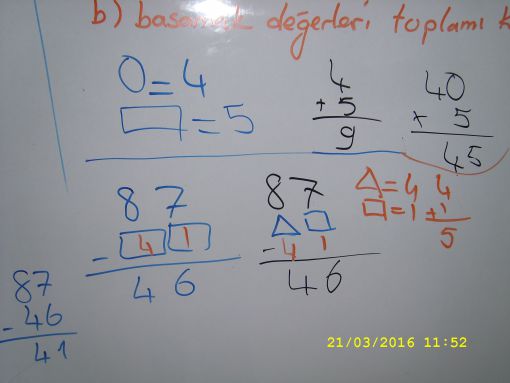 b) basamak değerleri toplamı k
O = 4
□ = 5
4
+ 5
9
40
+ 5
45
87
- 41
46
87
△□
- 41
46
△ = 4
□ = 1
4
+ 1
5
87
- 46
41
21/03/2016 11:52